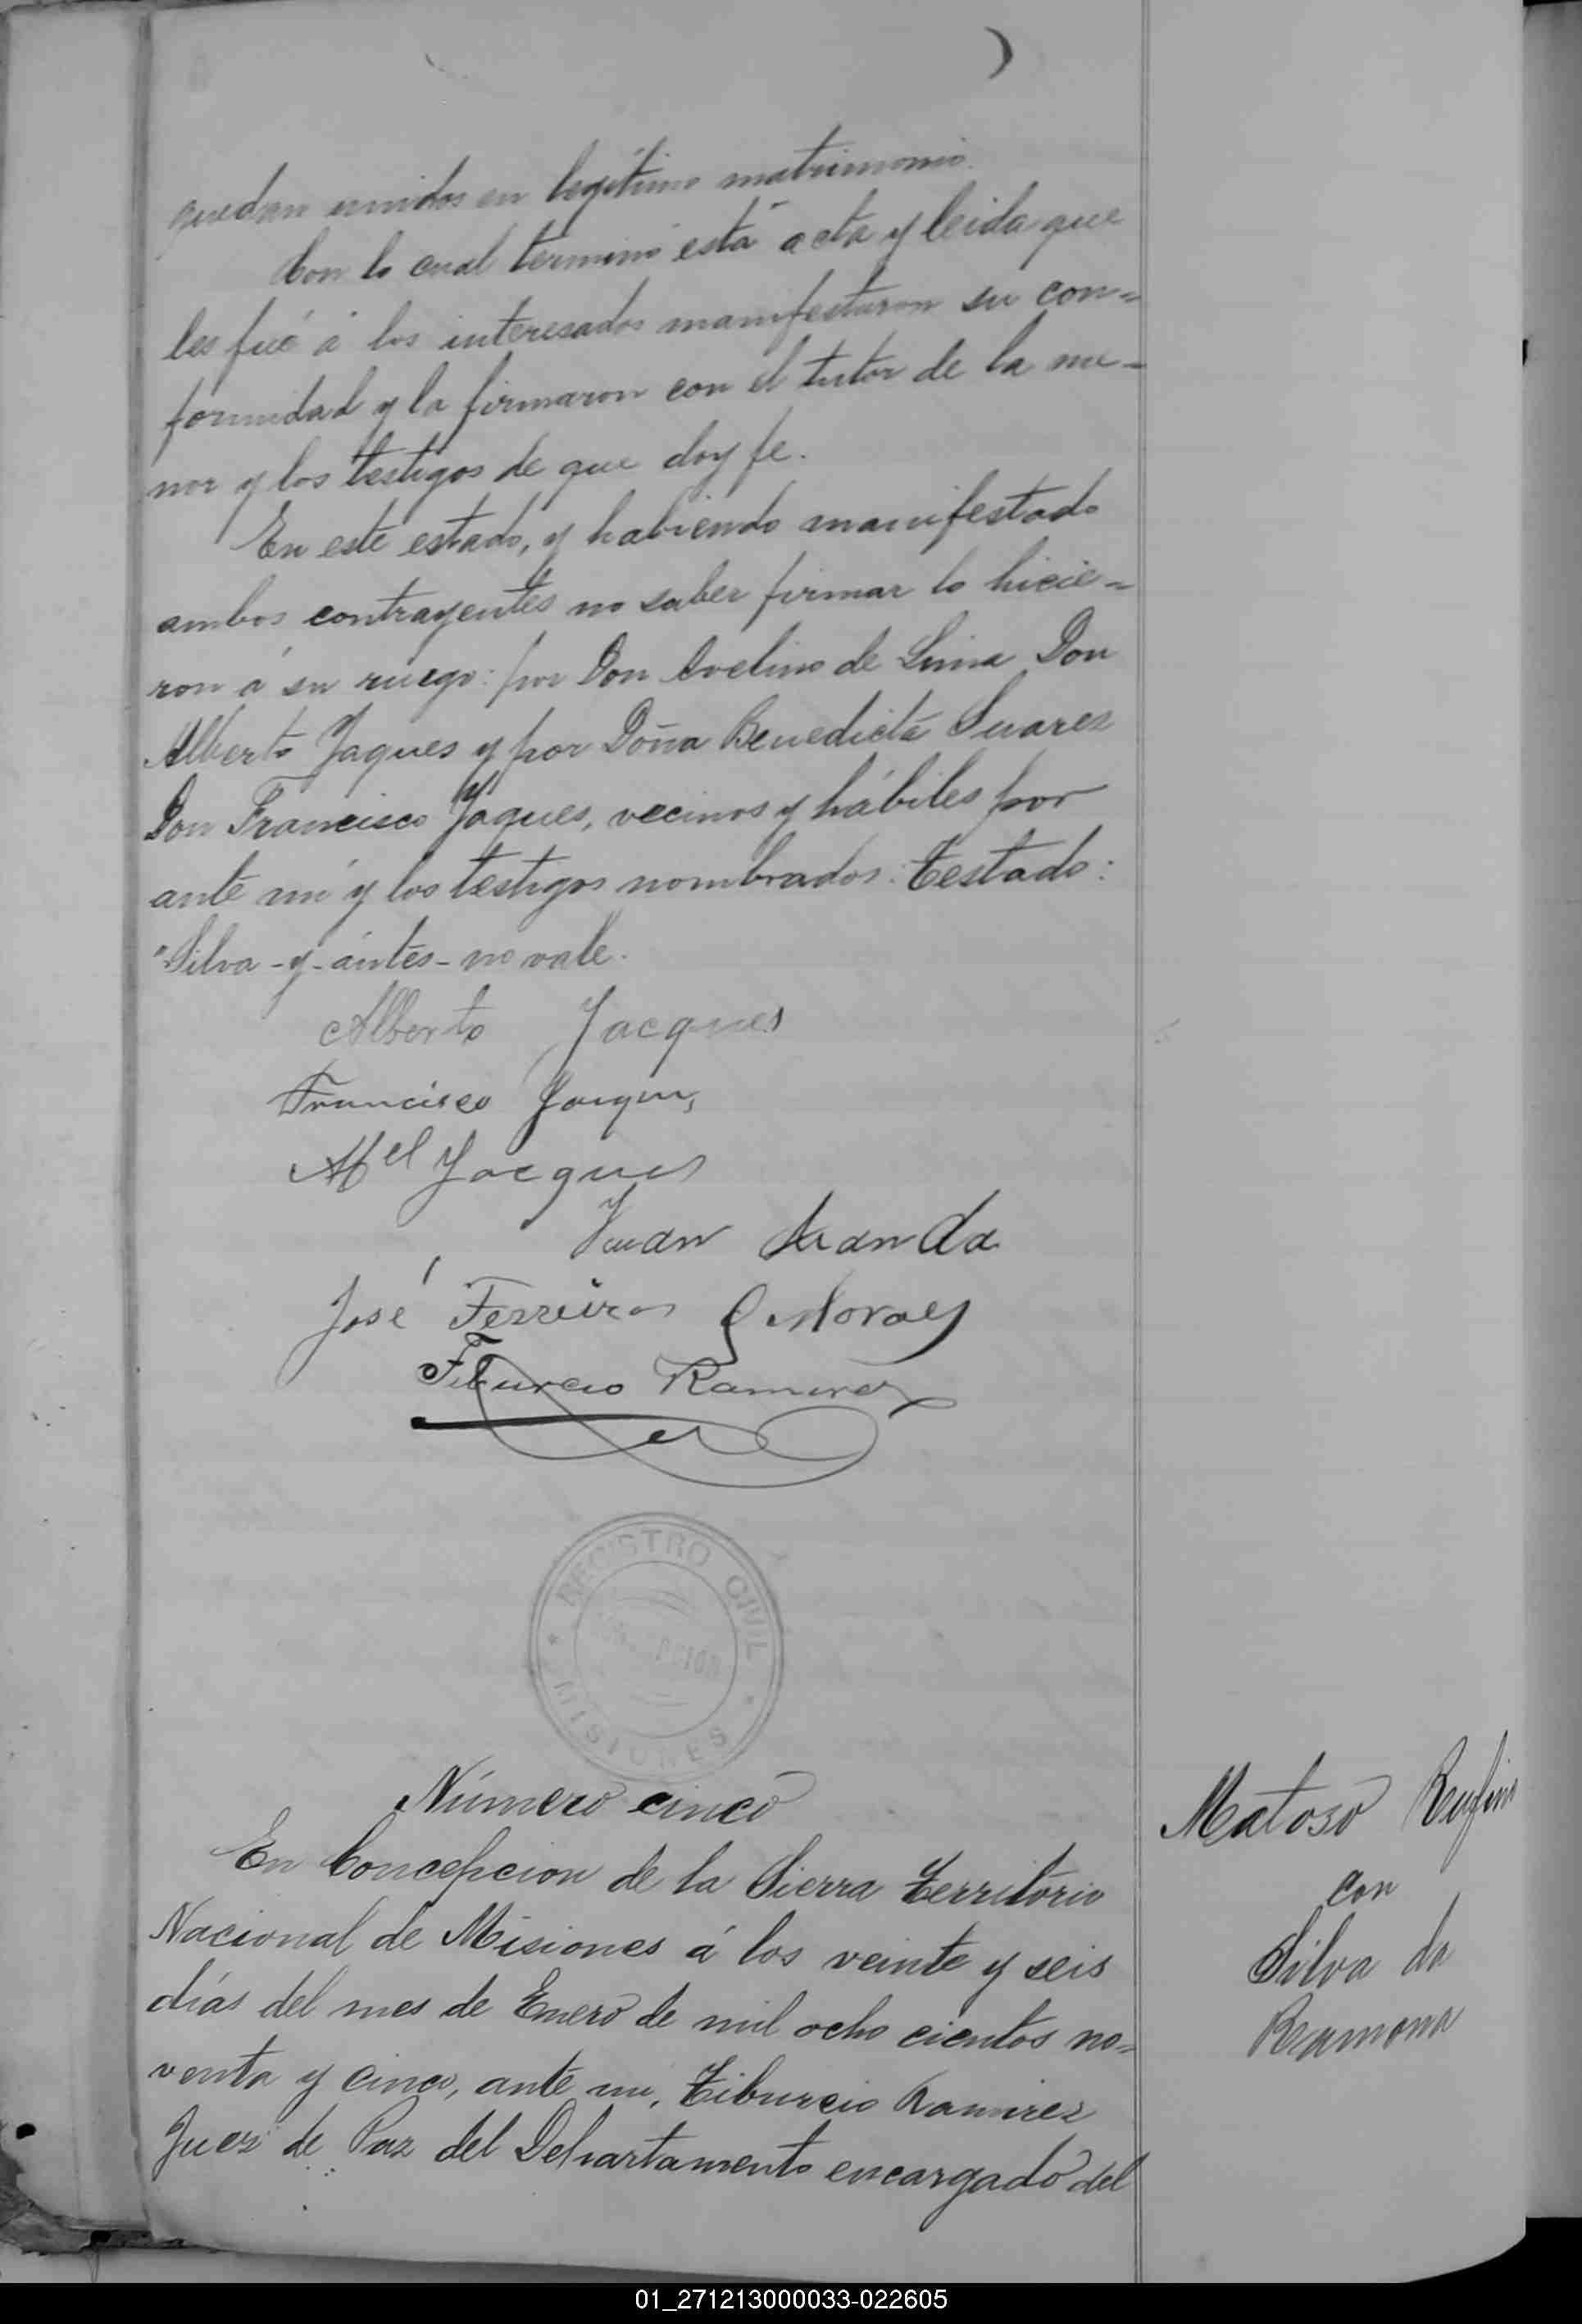 quedan unidos en legítimo matrimonio.
Con lo cual terminó está acta y leida que
les fué á los interesados manifestaron su con=
formidad y la firmaron con el tutor de la me-
nor y los testigos de que doy fe.
En este estado, y habiendo manifestado
ambos contrayentes no saber firmar lo hicie=
ron á su ruego: por Don Avelino de Lima Don
Alberto Jaques y por Doña Benedicta Suarez
Don Francisco Jaques, vecinos y hábiles por
ante mi y los testigos nombrados: Testado:
"Silva - y - ántes - no vale.
Alberto Jacques
Francisco
Mel Jacques
Juan Aranda
José Ferreira Moraes
Tiburcio Ramirez
REGISTRO CIVIL
MISIONES
Número cinco
En Concepcion de la Sierra Territorio
Nacional de Misiones á los veinte y seis
días del mes de Enero de mil ocho cientos no=
venta y cinco, ante mi, Tiburcio Ramirez
Juez de Paz del Departamento encargado del
Matoso Rufino
con
Silva da
Ramona
01_271213000033-022605